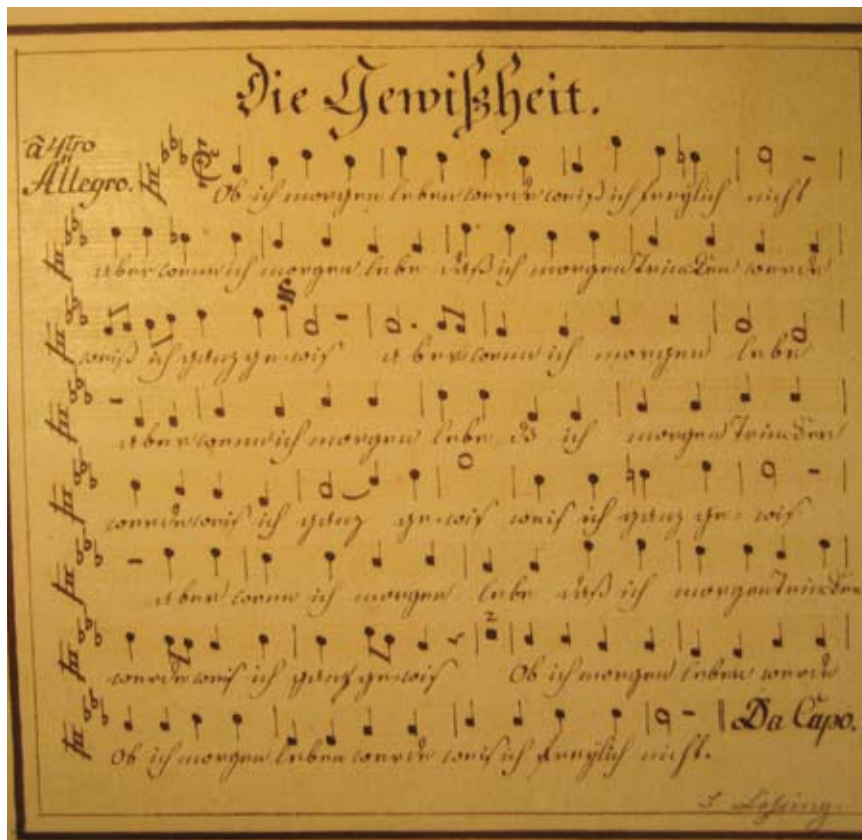 Die Gewißheit.
à 4tro
Allegro.
Ob ich morgen leben werde weiß ich freÿlich nicht
aber wenn ich morgen lebe daß ich morgen trincken werde
weiß ich ganz gewis aber wenn ich morgen lebe
aber wenn ich morgen lebe ds ich morgen trincken
werde weis ich ganz gewis weis ich ganz ge- wis
aber wenn ich morgen lebe daß ich morgen trincken
werde weis ich ganz gewis Ob ich morgen leben werde
Ob ich morgen leben werde weis ich freÿlich nicht.
Da Capo.